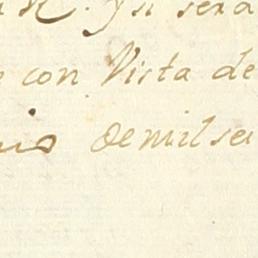 y si sera
con Vista de
de mil se